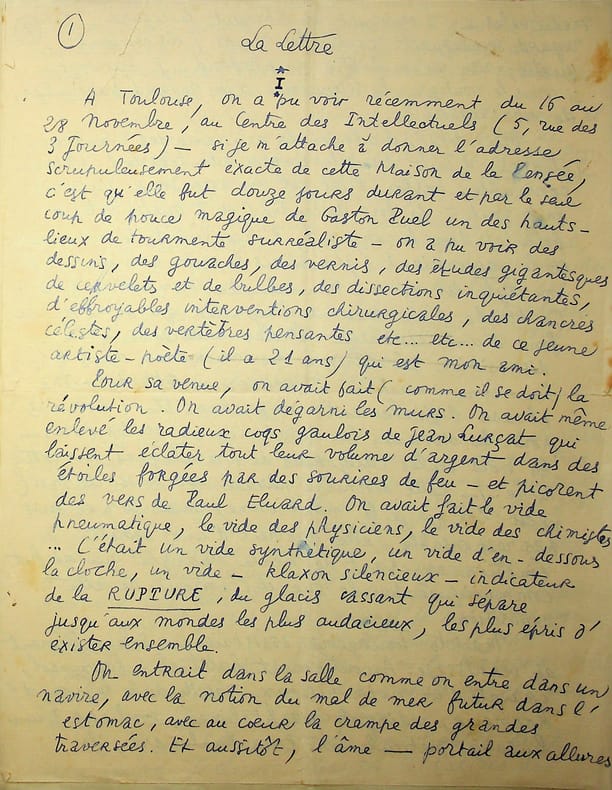 1
La Lettre
I
A Toulouse, on a pu voir récemment du 16 au
28 Novembre, au Centre des Intellectuels (5, rue des
3 Journées) — si je m'attache à donner l'adresse
scrupuleusement exacte de cette Maison de la Pensée,
c'est qu'elle fut douze jours durant et par le seul
coup de pouce magique de Gaston Puel un des hauts-
lieux de tourmente surréaliste — on a pu voir des
dessins, des gouaches, des vernis, des études gigantesques
de cervelets et de bulbes, des dissections inquiétantes,
d'effroyables interventions chirurgicales, des chancres
célestes, des vertèbres pensantes etc... etc... de ce jeune
artiste-poète (il a 21 ans) qui est mon ami.
Pour sa venue, on avait fait (comme il se doit) la
révolution. On avait dégarni les murs. On avait même
enlevé les radieux coqs gaulois de Jean Lurçat qui
laissent éclater tout leur volume d'argent dans des
étoiles forgées par des sourires de feu — et picorent
des vers de Paul Eluard. On avait fait le vide
pneumatique, le vide des physiciens, le vide des chimistes
... C'était un vide synthétique, un vide d'en-dessous
la cloche, un vide — klaxon silencieux — indicateur
de la RUPTURE, du glacis cassant qui sépare
jusqu'aux mondes les plus audacieux, les plus épris d'
exister ensemble.
On entrait dans la salle comme on entre dans un
navire, avec la notion du mal de mer futur dans l'
estomac, avec au coeur la crampe des grandes
traversées. Et aussitôt, l'âme — portail aux allures